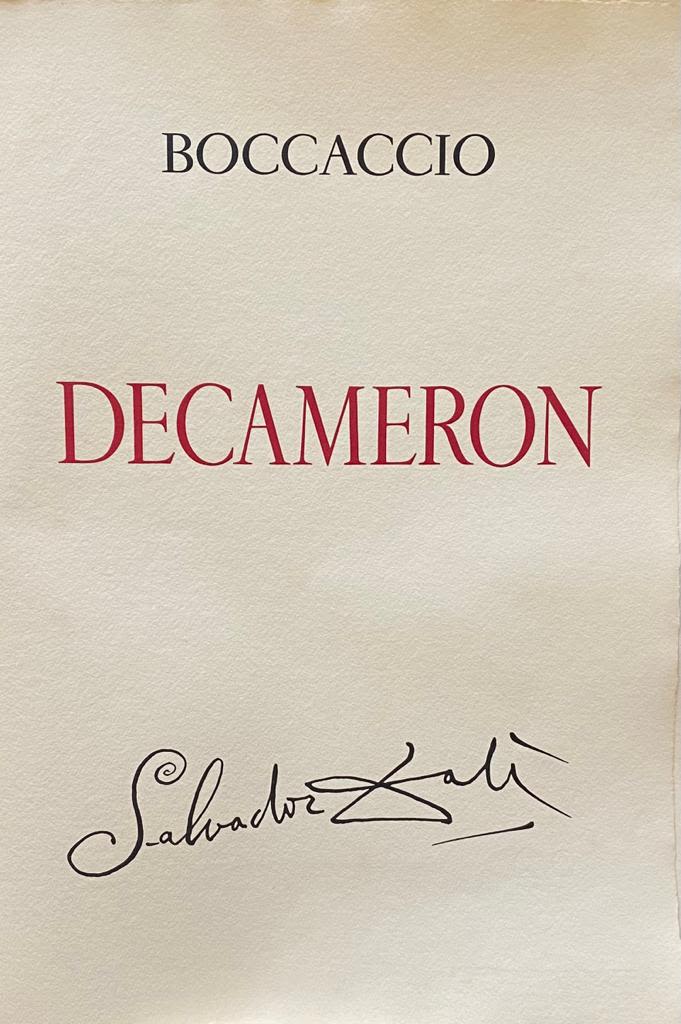 BOCCACCIO
DECAMERON
Salvador Dalí